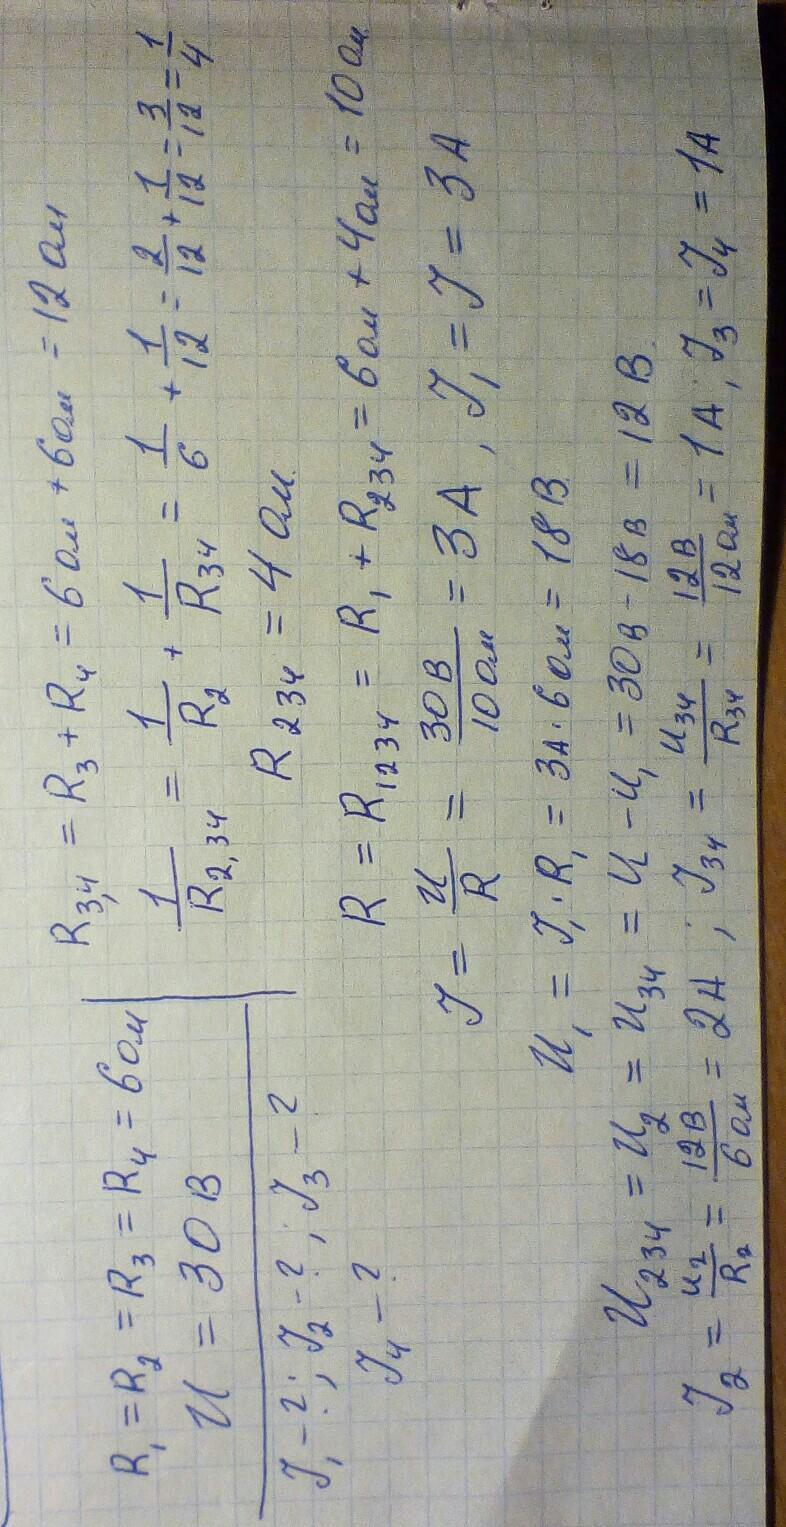 R₁ = R₂ = R₃ = R₄ = 6 Ом
U = 30 В
I₁ - ?; I₂ - ?; I₃ - ?
I₄ - ?
R₃,₄ = R₃ + R₄ = 6 Ом + 6 Ом = 12 Ом
1/R₂,₃₄ = 1/R₂ + 1/R₃₄ = 1/6 + 1/12 = 2/12 + 1/12 = 3/12 = 1/4
R₂₃₄ = 4 Ом.
R = R₁₂₃₄ = R₁ + R₂₃₄ = 6 Ом + 4 Ом = 10 Ом
I = U/R = 30 В/10 Ом = 3 А, I₁ = I = 3 А
U₁ = I₁ · R₁ = 3А · 6 Ом = 18 В.
U₂₃₄ = U₂ = U₃₄ = U - U₁ = 30 В - 18 В = 12 В.
I₂ = U₂/R₂ = 12 В/6 Ом = 2 А; I₃₄ = U₃₄/R₃₄ = 12 В/12 Ом = 1 А; I₃ = I₄ = 1 А